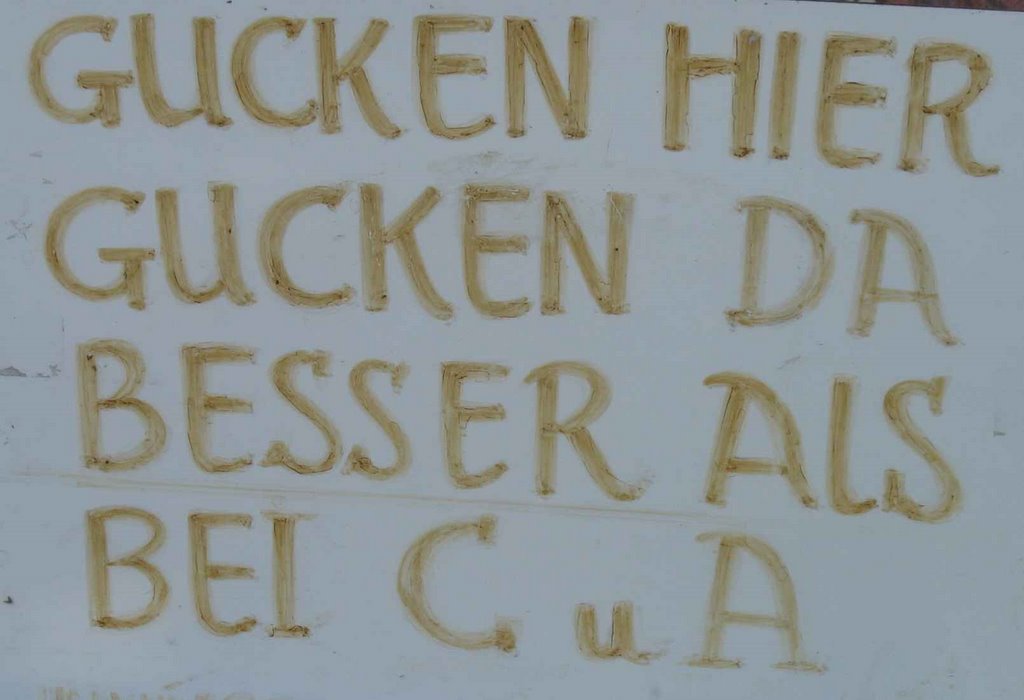 GUCKEN HIER
GUCKEN DA
BESSER ALS
BEI C u A